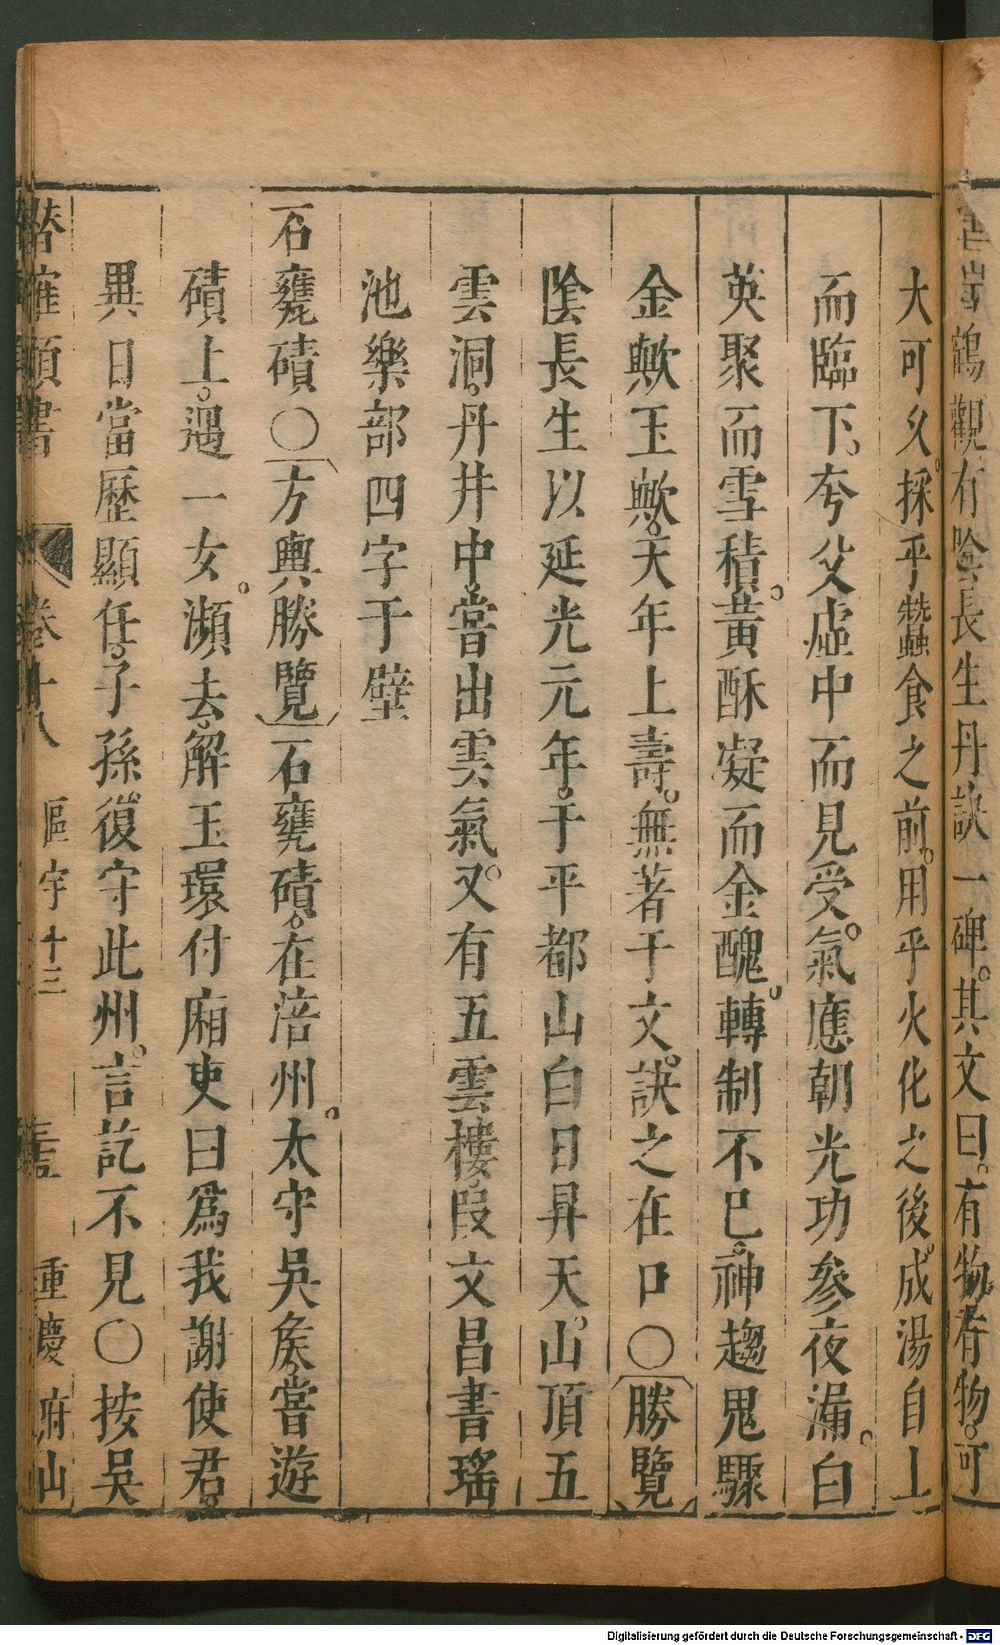 鶴觀有陰長生丹訣一碑。其文曰。有物有物。可
大可久。採乎蠶食之前。用乎火化之後。成湯自上
而臨下。夸父虛中而見受。氣應朝光功參夜漏。白
英聚而雪積。黃酥凝而金醜。轉制不已。神趨鬼驟
金歟玉歟。天年上壽。無著于文。訣之在口〇勝覽
陰長生以延光元年。于平都山白日昇天。山頂五
雲洞。丹井中。嘗出雲氣。又有五雲樓。段文昌書瑤
池樂部四字于壁
石甕磧〇方輿勝覽石甕磧。在涪州。太守吳侯。嘗遊
磧上。遇一女。瀕去。解玉環付廂吏曰爲我謝使君。
異日當歷顯任。子孫復守此州。言訖不見〇按吳
潛確類書 卷十八 區宇十三 重慶府山
Digitalisierung gefördert durch die Deutsche Forschungsgemeinschaft - DFG